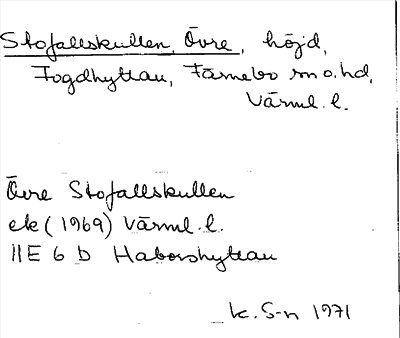 Stofallskullen, Övre, höjd,
Fogdhyttan, Färnebo sn o. hd,
Värml. l.
Övre Stofallskullen
ek (1969) Värml. l.
11E 6 D Håborshyttan
k. S-n 1971